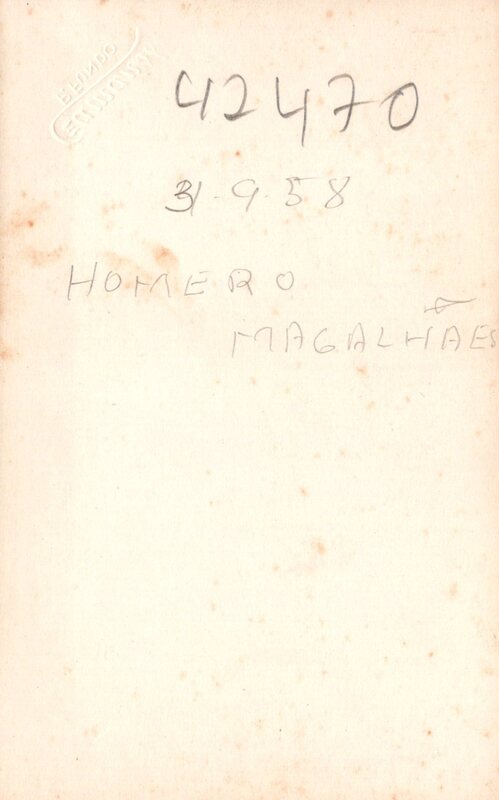 42470
31-9-58
HOMERO
MAGALHÃES